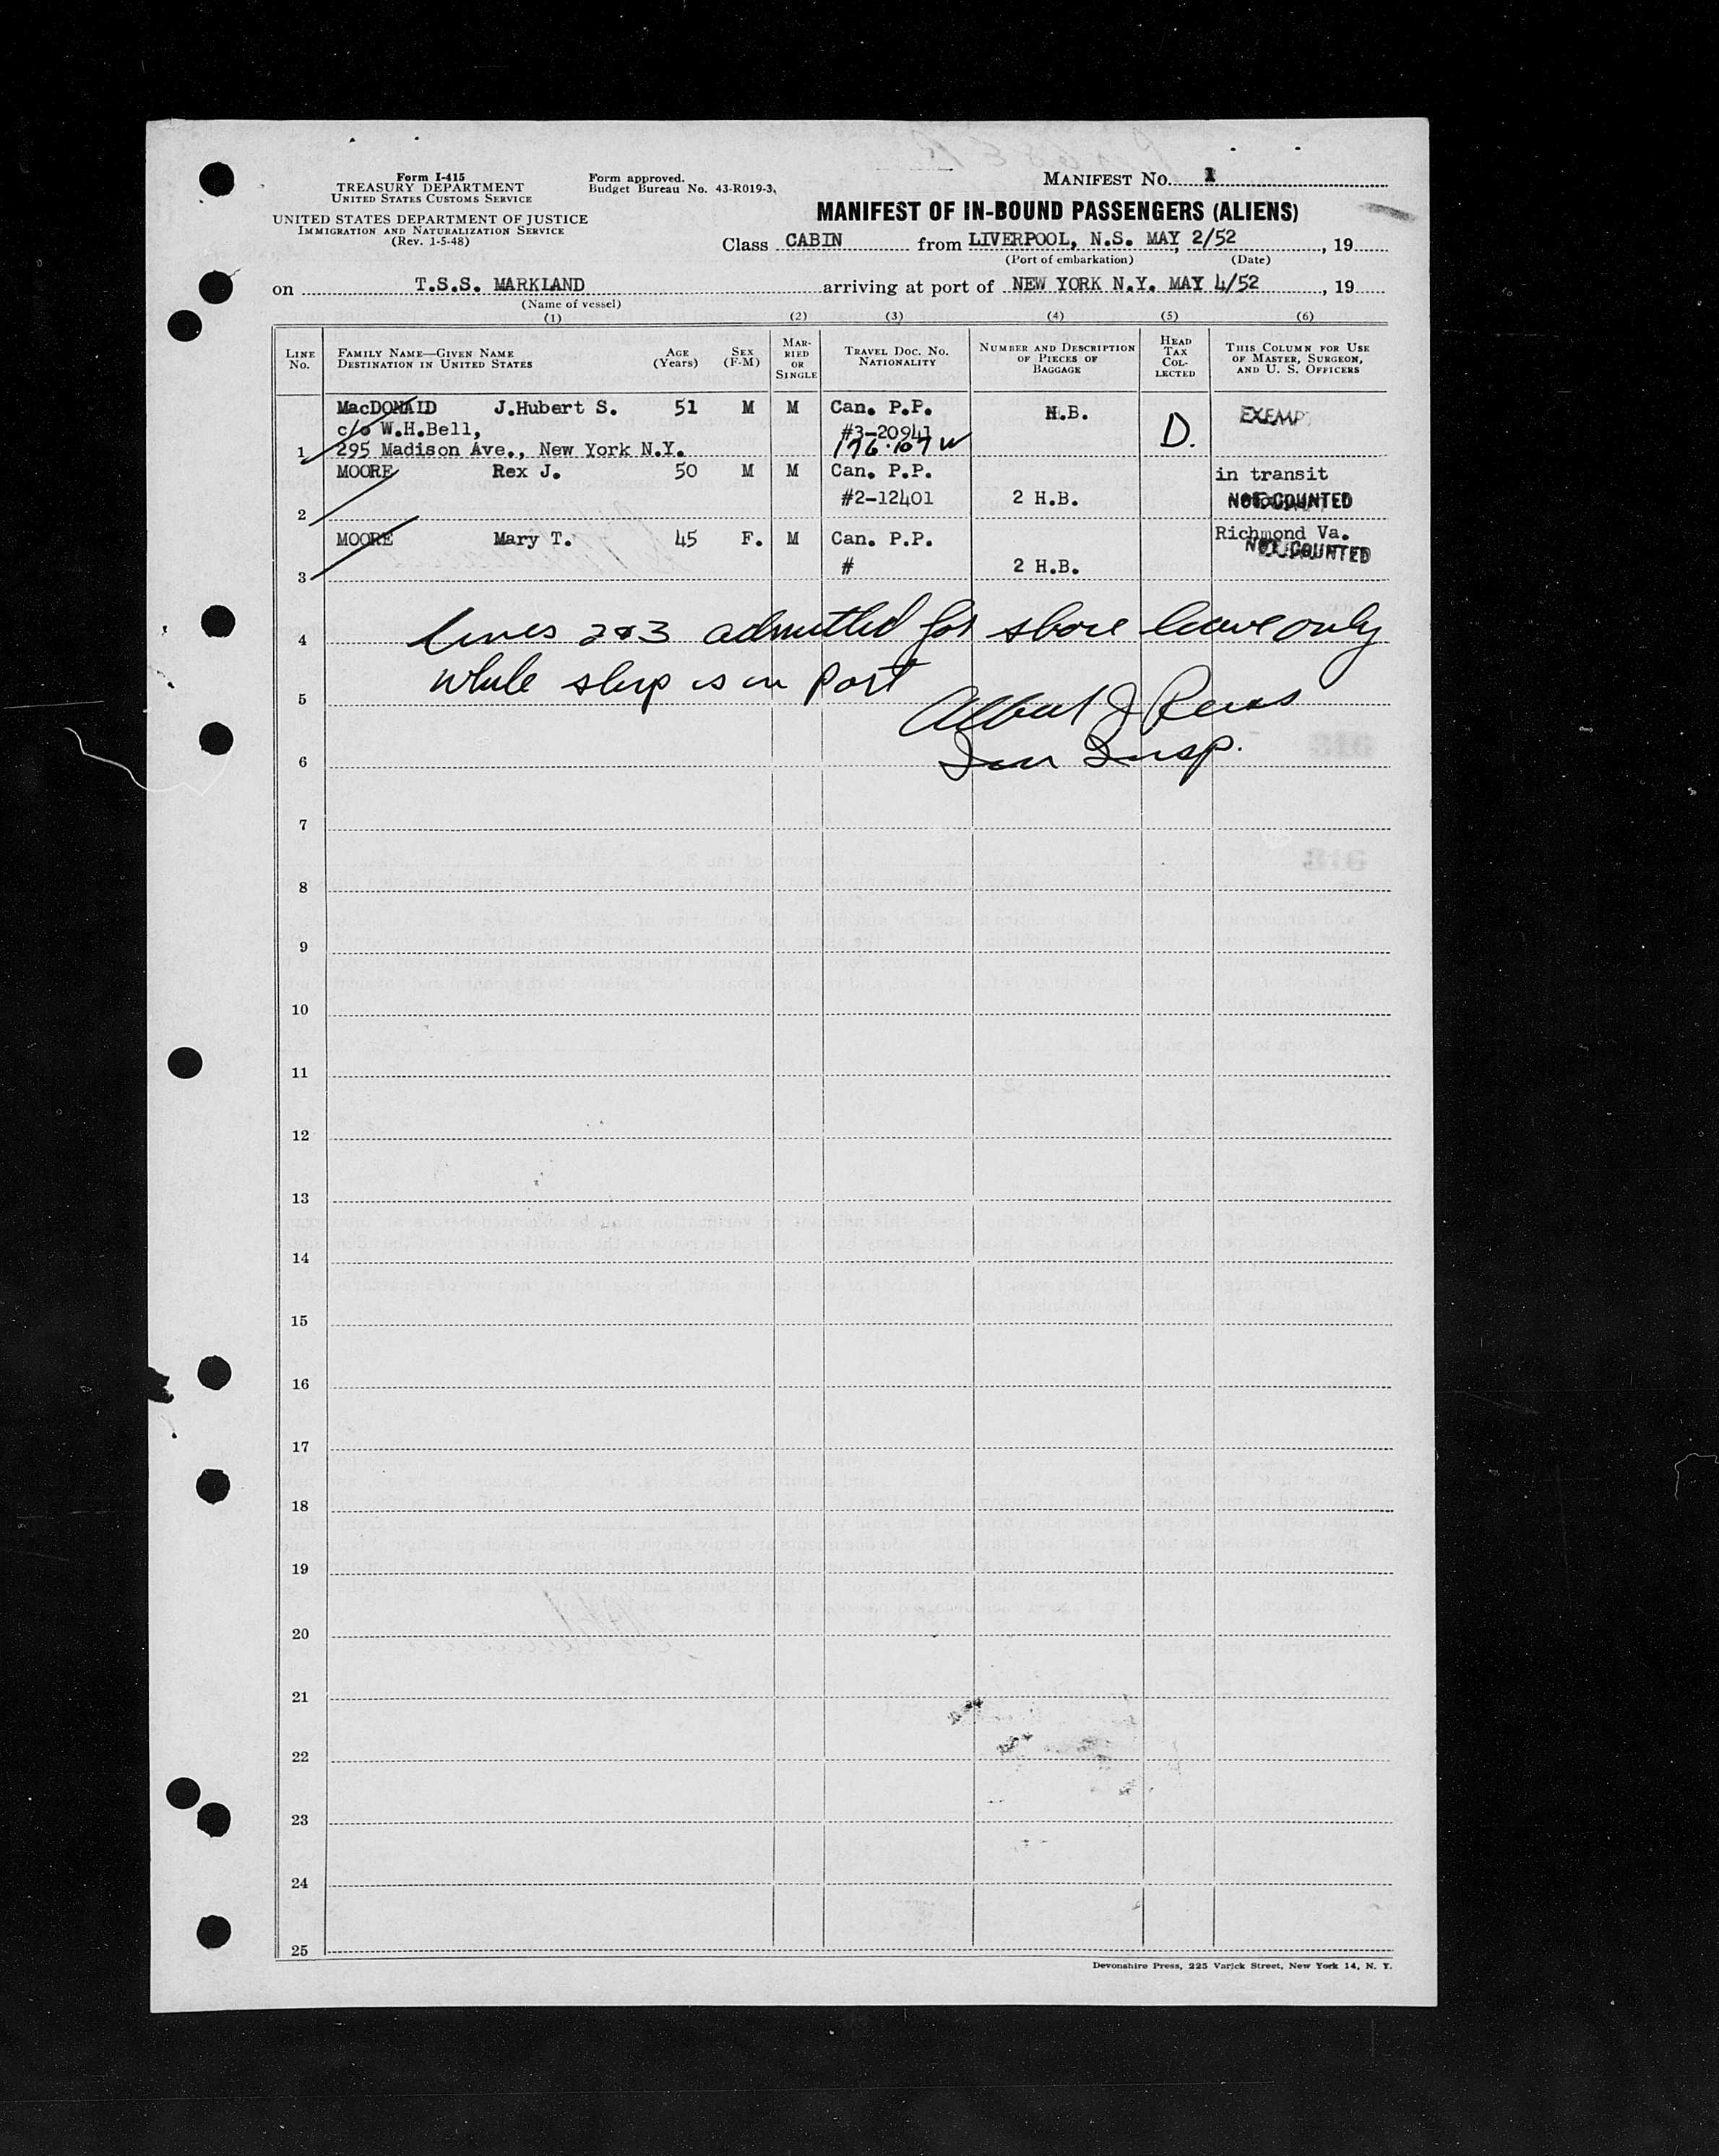 Form I-415
TREASURY DEPARTMENT
UNITED STATES CUSTOMS SERVICE
UNITED STATES DEPARTMENT OF JUSTICE
IMMIGRATION AND NATURALIZATION SERVICE
(Rev. 1-5-48)
Form approved.
Budget Bureau No. 43-R019-3.
MANIFEST No. 1
MANIFEST OF IN-BOUND PASSENGERS (ALIENS)
Class CABIN from LIVERPOOL, N.S. MAY 2/52, 19
(Port of embarkation) (Date)
on T.S.S. MARKLAND arriving at port of NEW YORK N.Y. MAY 4/52, 19
(Name of vessel)
(1) (2) (3) (4) (5) (6)
LINE No. FAMILY NAME—GIVEN NAME DESTINATION IN UNITED STATES AGE (Years) SEX (F-M) MARRIED OR SINGLE TRAVEL DOC. NO. NATIONALITY NUMBER AND DESCRIPTION OF PIECES OF BAGGAGE HEAD TAX COLLECTED THIS COLUMN FOR USE OF MASTER, SURGEON, AND U. S. OFFICERS
MacDONALD J.Hubert S. 51 M M Can. P.P. H.B. D. EXEMP
c/o W.H.Bell, #3-20941
1 295 Madison Ave., New York N.Y. 176.107 W
MOORE Rex J. 50 M M Can. P.P. in transit
2 #2-12401 2 H.B. NOT COUNTED
MOORE Mary T. 45 F. M Can. P.P. Richmond Va.
3 # 2 H.B. NOT COUNTED
4 Lines 2&3 admitted for shore leave only
5 while ship is in port
Albert J
6 Imm Insp.
7
8
9
10
11
12
13
14
15
16
17
18
19
20
21
22
23
24
25
Devonshire Press, 225 Varick Street, New York 14, N. Y.